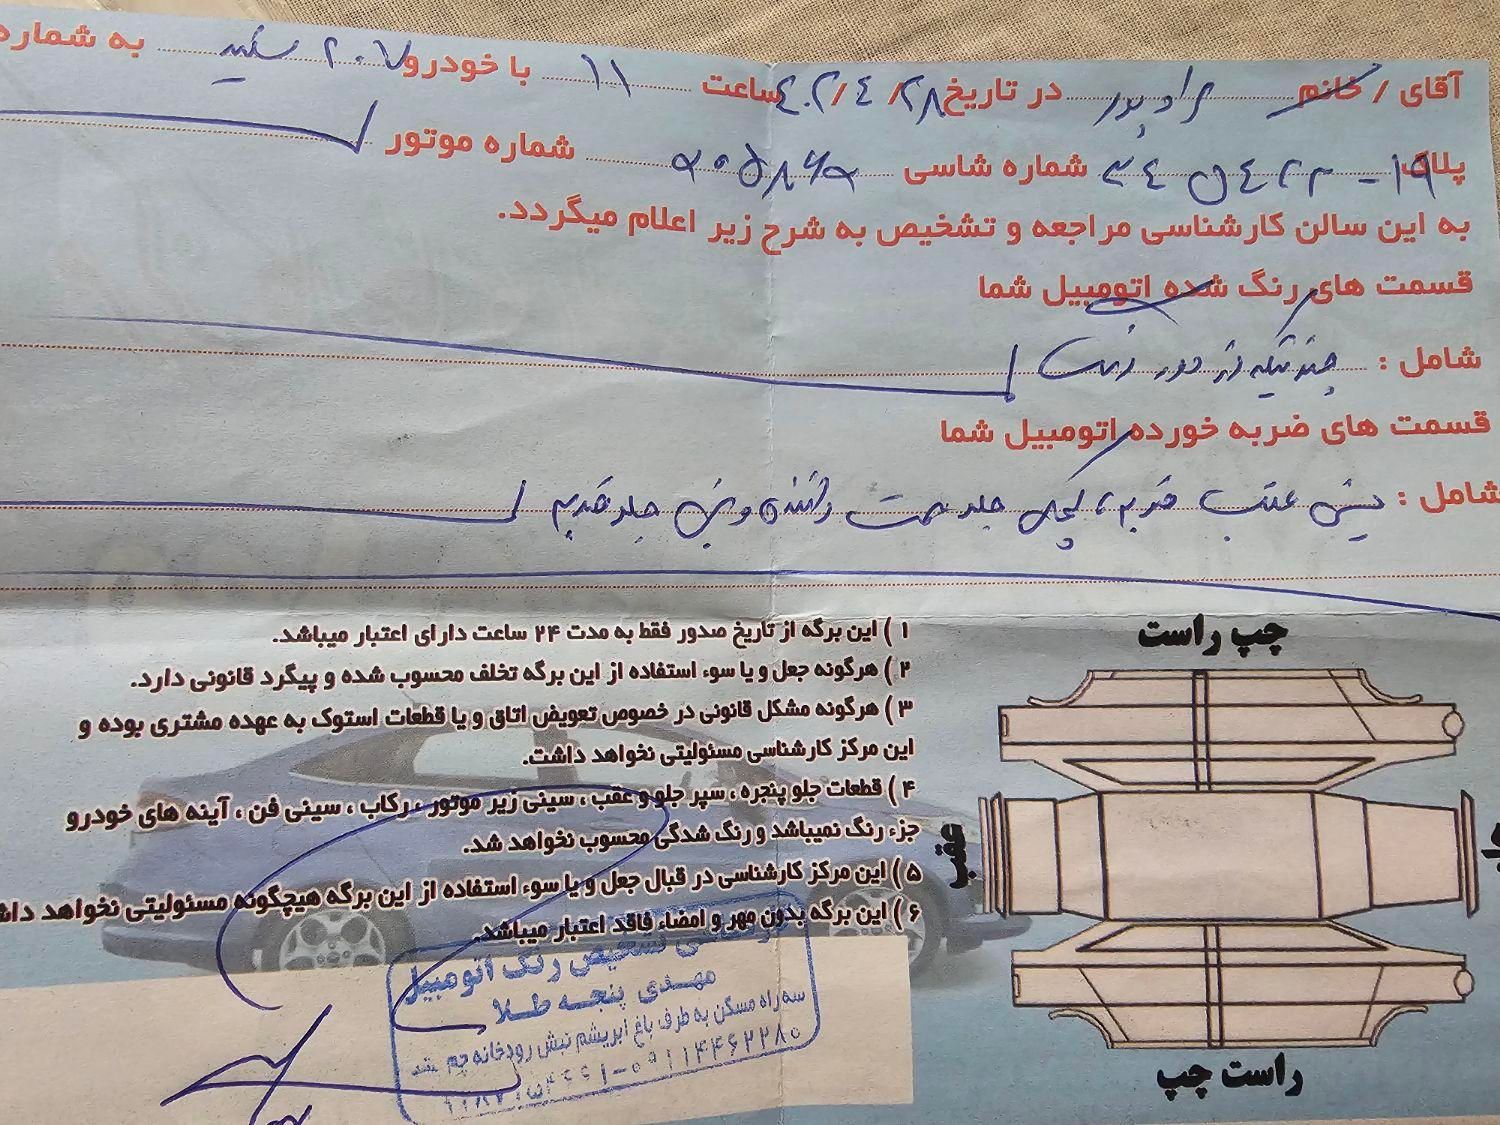 آقای / خانم مرادپور در تاریخ ۴۰۲/۴/۲۸ ساعت ۱۱ با خودرو ۲۰۷ سفید به شماره
پلاک ۱۹ - ۴۲۳ ۳۴ شماره شاسی شماره موتور
به این سالن کارشناسی مراجعه و تشخیص به شرح زیر اعلام میگردد.
قسمت های رنگ شده اتومبیل شما
شامل : چند تیکه دور رنگ است
قسمت های ضربه خورده اتومبیل شما
شامل : سینی عقب ضربه، جلو سمت راننده و سینی جلو ضربه
۱ ) این برگه از تاریخ صدور فقط به مدت ۲۴ ساعت دارای اعتبار میباشد.
۲ ) هرگونه جعل و یا سوء استفاده از این برگه تخلف محسوب شده و پیگرد قانونی دارد.
۳ ) هرگونه مشکل قانونی در خصوص تعویض اتاق و یا قطعات استوک به عهده مشتری بوده و
این مرکز کارشناسی مسئولیتی نخواهد داشت.
۴ ) قطعات جلو پنجره ، سپر جلو و عقب ، سینی زیر موتور ، رکاب ، سینی فن ، آینه های خودرو
جزء رنگ نمیباشد و رنگ شدگی محسوب نخواهد شد.
۵ ) این مرکز کارشناسی در قبال جعل و یا سوء استفاده از این برگه هیچگونه مسئولیتی نخواهد داش
۶ ) این برگه بدون مهر و امضاء فاقد اعتبار میباشد.
چپ راست
عقب
راست چپ
تشخیص رنگ اتومبیل
مهدی پنجه طلا
سه راه مسکن به طرف باغ ابریشم نبش رودخانه چم
۰۹۱۱۴۴۶۲۲۸۰